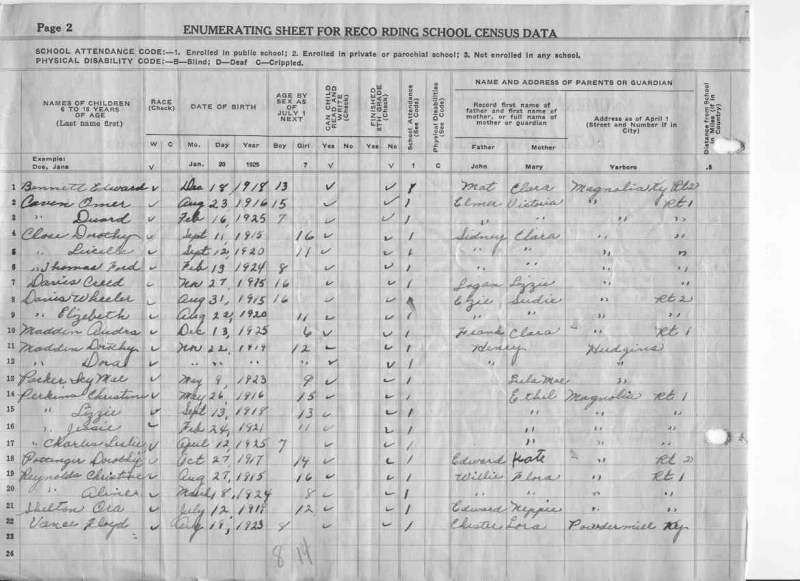 Page 2
ENUMERATING SHEET FOR RECO RDING SCHOOL CENSUS DATA
SCHOOL ATTENDANCE CODE:—1. Enrolled in public school; 2. Enrolled in private or parochial school; 3. Not enrolled in any school.
PHYSICAL DISABILITY CODE:—B—Blind; D—Deaf C—Crippled.
NAMES OF CHILDREN 6 TO 18 YEARS OF AGE (Last name first) RACE (Check) DATE OF BIRTH AGE BY SEX AS OF JULY 1 NEXT CAN CHILD READ AND WRITE (Check) FINISHED 8TH GRADE (Check) School Attendance (See Code) Physical Disabilities (See Code) NAME AND ADDRESS OF PARENTS OR GUARDIAN Distance from School in Miles (if in Country)
Record first name of father and first name of mother, or full name of mother or guardian Address as of April 1 (Street and Number if in City)
W C Mo. Day Year Boy Girl Yes No Yes No 1 C Father Mother
Example: Doe, Jane V Jan. 20 1925 7 V V John Mary Varboro .8
1 Bennett Edward v Dec 18 1918 13 v v Mat Clara Magnolia Ky Rt2
2 Caven Omer v Aug 23 1916 15 v v 1 Elmer Victoria " Rt 1
3 " Duard v Feb 16, 1925 7 v v 1 " " " "
4 Close Dorothy v Sept 11, 1915 16 v v 1 Sidney Clara " "
5 " Lucille v Sept 12, 1920 11 v v 1 " " " "
6 " Thomas Ford v Feb 13 1924 8 v v 1 " " " "
7 Davies Creed v Nov 27, 1915 16 v v 1 Logan Lizzie " "
8 Davis Wheeler v Aug 31, 1915 16 v v Ezie Sudie " Rt 2
9 " Elizabeth v Aug 22, 1920 11 v v 1 " " " "
10 Madden Audra v Dec 13, 1925 6 v v 1 Frank Clara " Rt 1
11 Madden Dorothy v Nov 22, 1919 12 v v 1 Henry Hudgins
12 " Dora v " " " " v v 1 " "
13 Parker Icy Mae v May 9, 1923 9 v v 1 Lula Mae "
14 Perkins Christine v May 26, 1916 15 v v 1 Ethel Magnolia Rt 1
15 " Lizzie v Sept 13, 1918 13 v v 1 " " "
16 " Jessie v Feb 24, 1921 11 v v 1 " " "
17 " Charles Leslie v April 12, 1925 7 v 1 " " "
18 Pottinger Dorothy v Oct 27 1917 14 v v 1 Edward Kate " Rt 2
19 Reynolds Christine v Aug 27, 1915 16 v v 1 Willie Flora " Rt 1
20 " v March 8, 1924 8 v v 1 " " " "
21 Shelton Ora v July 12, 12 v v 1 Edward " "
22 Vance Floyd v Aug 1923 8 v v 1 Chester Lora Powdermill Ky
23
24
8 14